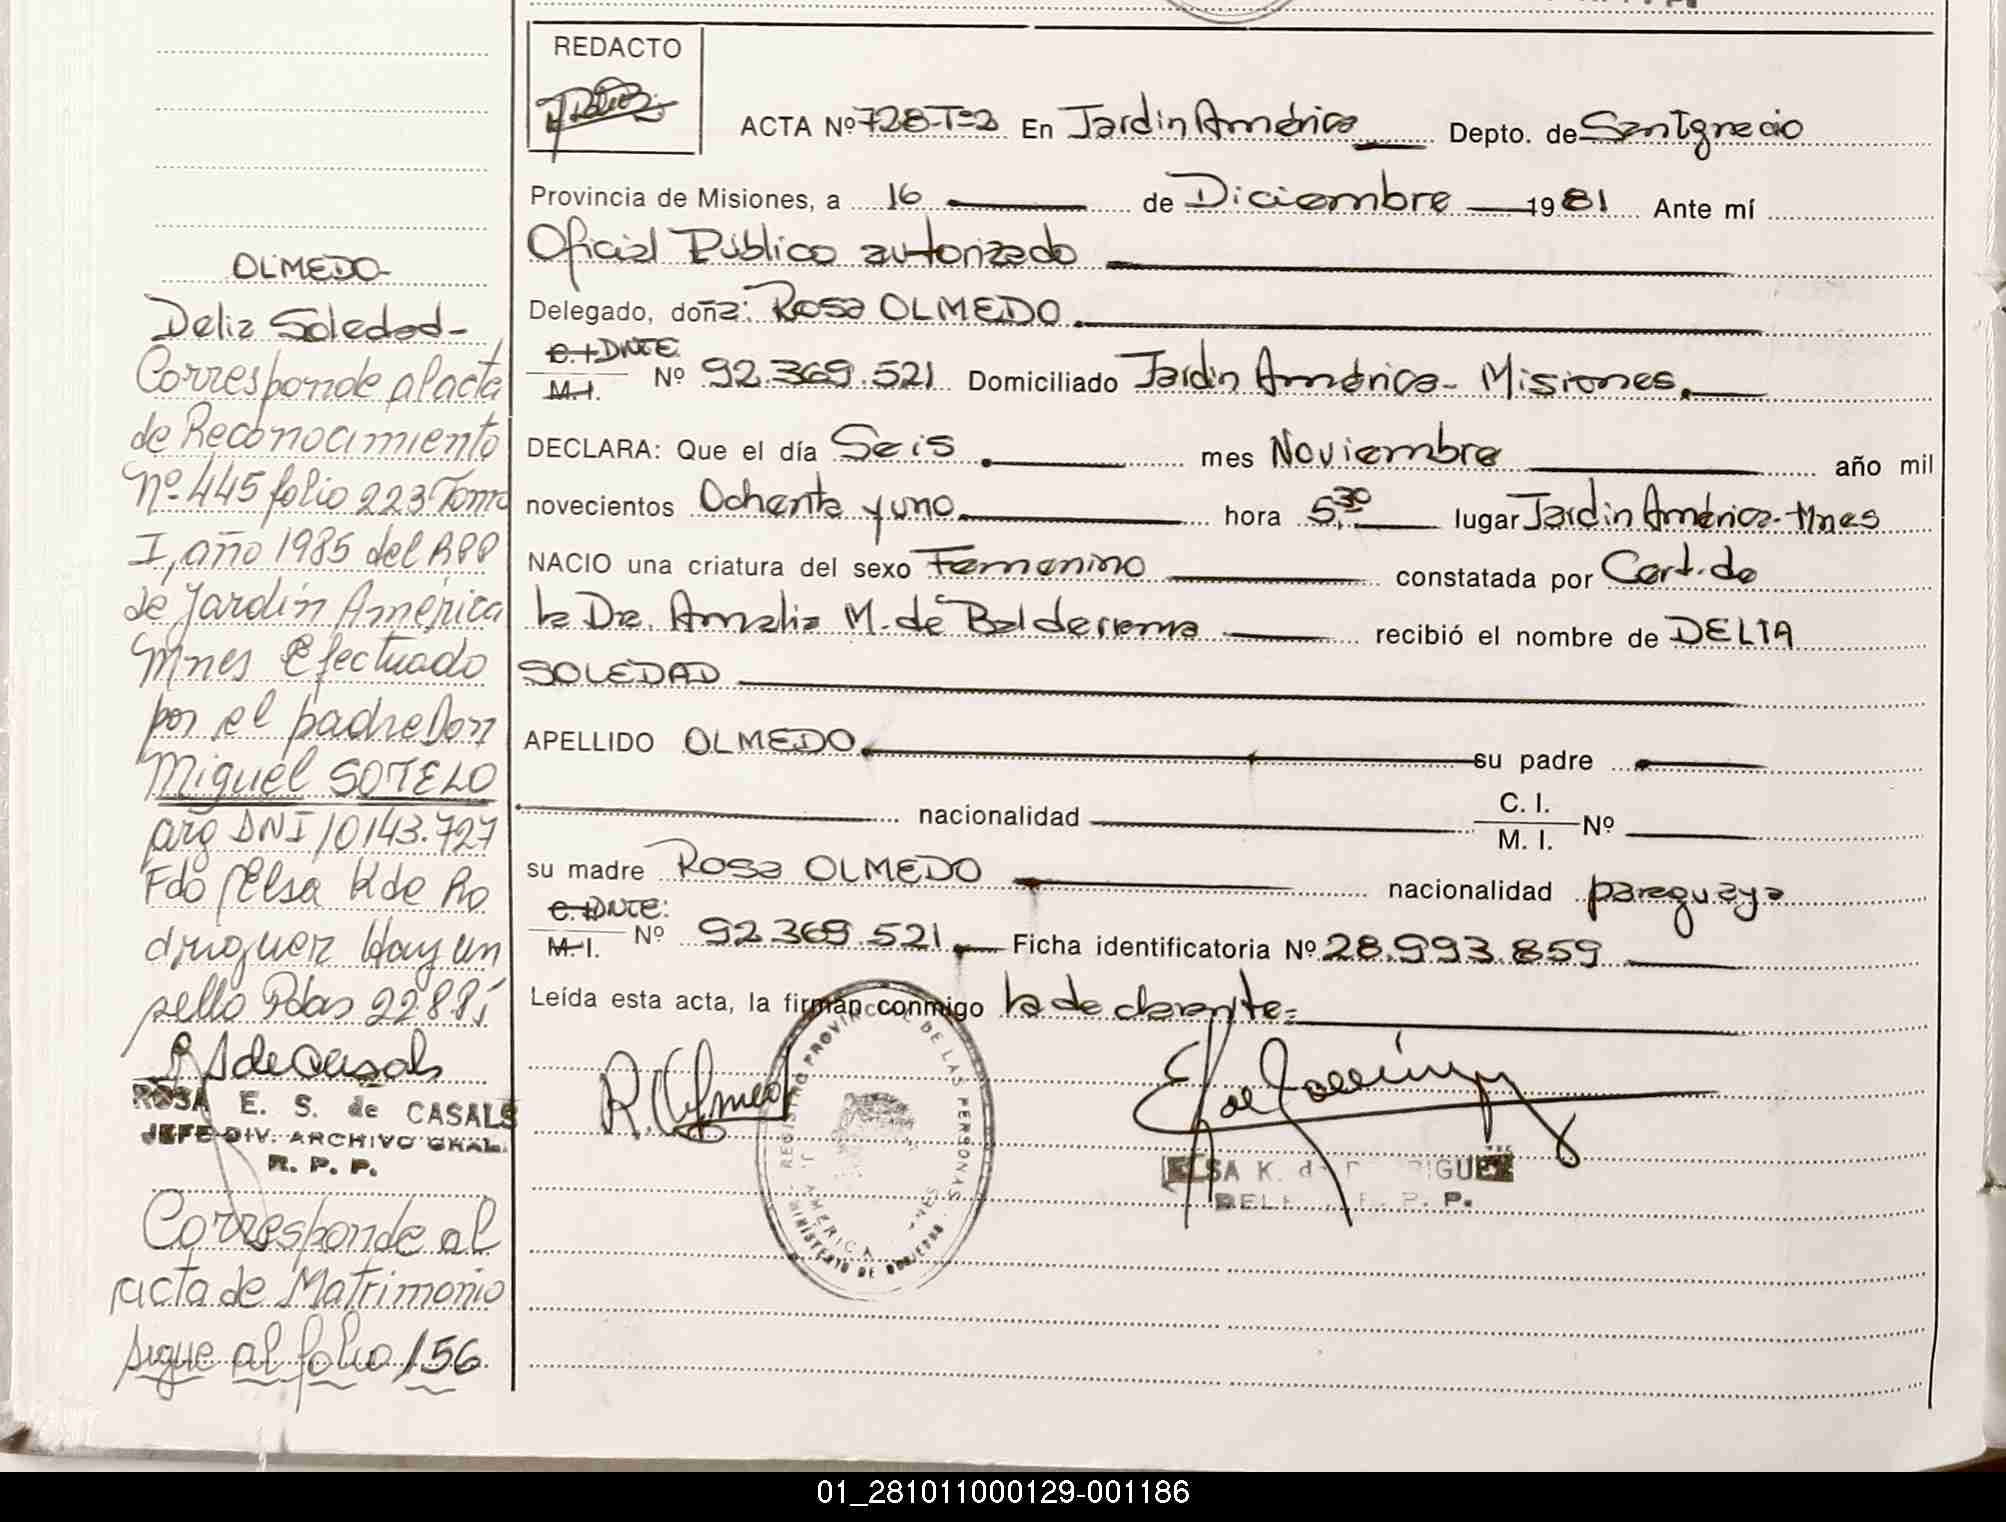 REDACTO
ACTA Nº 728-Tº2 En Jardín América Depto. de San Ignacio
Provincia de Misiones, a 16 de Diciembre 1981 Ante mí
Oficial Público autorizado
Delegado, doña: Rosa OLMEDO
C.I. DNTE. M.I. Nº 92.369.521 Domiciliado Jardín América - Misiones.
DECLARA: Que el día Seis mes Noviembre año mil
novecientos Ochenta y uno hora 5,30 lugar Jardín América - Mnes
NACIO una criatura del sexo Femenino constatada por Cert. de
la Dra. Amalia M. de Balderrama recibió el nombre de DELIA
SOLEDAD
APELLIDO OLMEDO su padre
nacionalidad C. I. M. I. Nº
su madre Rosa OLMEDO nacionalidad paraguaya
C.I. DNTE: M.I. Nº 92.369.521 Ficha identificatoria Nº 28.993.859
Leída esta acta, la firman conmigo la declarante.
R. Olmedo
REGISTRO PROVINCIAL DE LAS PERSONAS
J. AMERICA
MINISTERIO DE GOBIERNO
ELSA K. de RODRIGUEZ
R. P. P.
OLMEDO-
Delia Soledad-
Corresponde al acta
de Reconocimiento
Nº 445 folio 223 Tomo
I, año 1985 del RPP
de Jardín América
Mnes Efectuado
por el padre Don
Miguel SOTELO
arg DNI 10143.727
Fdo Elsa K de Ro
driguez Hay un
sello Pdas 22885
R S de Casals
ROSA E. S. de CASALS
JEFE DIV. ARCHIVO GRAL.
R. P. P.
Corresponde al
acta de Matrimonio
sigue al folio 156
01_281011000129-001186